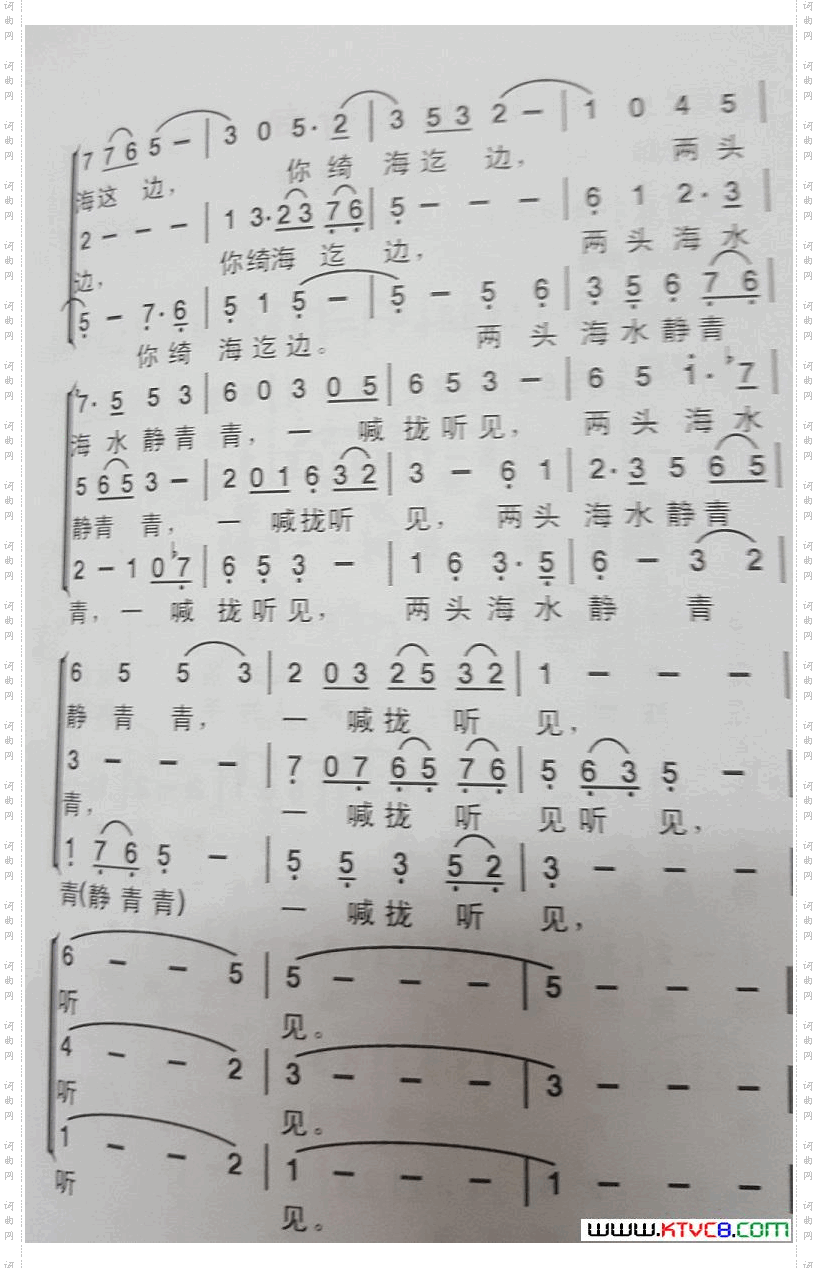 7 7 6 5 – | 3 0 5· 2 | 3 5 3 2 – | 1 0 4 5 |
海这 边， 你 绮 海 迄 边， 两 头
2 – – – | 1 3· 2 3 7 6 | 5 – – – | 6 1 2· 3 |
边， 你绮海 迄 边， 两 头 海 水
5 – 7· 6 | 5 1 5 – | 5 – 5 6 | 3 5 6 7 6 |
你 绮 海 迄 边。 两 头 海 水 静 青
♭7· 5 5 3 | 6 0 3 0 5 | 6 5 3 – | 6 5 1· ♭7 |
海 水 静 青 青， 一 喊 拢 听 见， 两 头 海 水
5 6 5 3 – | 2 0 1 6 3 2 | 3 – 6 1 | 2· 3 5 6 5 |
静青 青， 一 喊拢听 见， 两 头 海 水 静 青
2 – 1 0 ♭7 | 6 5 3 – | 1 6 3· 5 | 6 – 3 2 |
青，一 喊 拢 听 见， 两 头 海 水 静 青
6 5 5 3 | 2 0 3 2 5 3 2 | 1 – – – |
静 青 青， 一 喊 拢 听 见，
3 – – – | 7 0 7 6 5 7 6 | 5 6 3 5 –
青， 一 喊 拢 听 见 听 见，
1 7 6 5 – | 5 5 3 5 2 | 3 – – – |
青(静 青 青) 一 喊 拢 听 见，
6 – – 5 | 5 – – – | 5 – – – |
听 见。
4 – – 2 | 3 – – – | 3 – – – |
听 见。
1 – – 2 | 1 – – – | 1 – – – |
听 见。
www.KTVC8.com